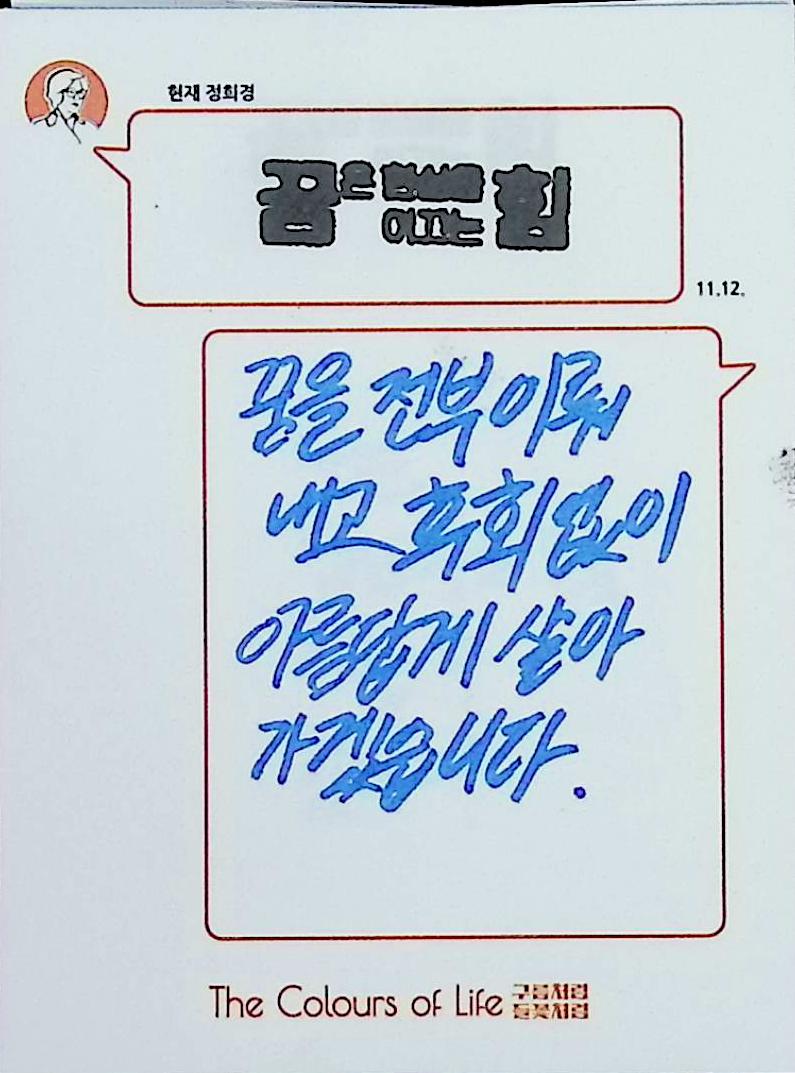 현재 정희경
꿈은 힘
11.12.
꿈을 전부 이뤄
내고 후회 없이
아름답게 살아
가겠읍니다.
The Colours of Life 구름처럼
들꽃처럼